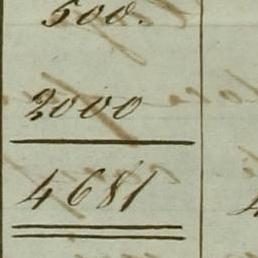 500.
2000
4681